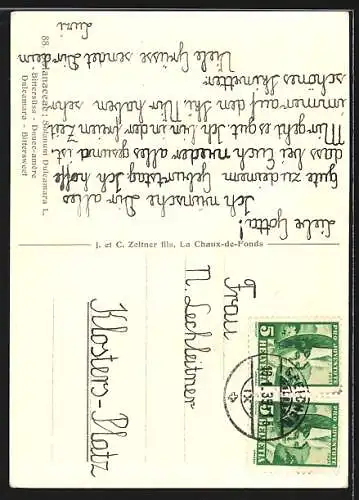 Liebe Gotta!
Ich wünsche Dir alles
gute zu deinem Geburtstag Ich hoffe
dass bei Euch wieder alles gesund ist
Mir geht es gut Ich bin in der freien Zeit
immer auf den Ski Wir haben sehr
schönes Skiwetter
Viele Grüsse sendet Dir dein
88. Solanaceae: Solanum Dulcamara L.
Bittersüss - Douce-amère
Dulcamara - Bittersweet
J. et C. Zeltner fils, La Chaux-de-Fonds
Frau
N. Lechleitner
Klosters-Platz
5 HELVETIA
PRO JUVENTUTE
HELVETIA
PRO JUVENTUTE